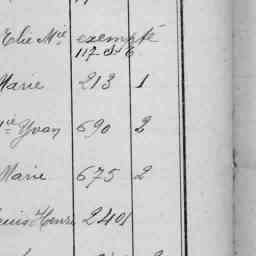 Elie Mie exempté
117 d 6
Marie 213 1
Yvan 690 2
Marie 675 2
Louis Henri 2401